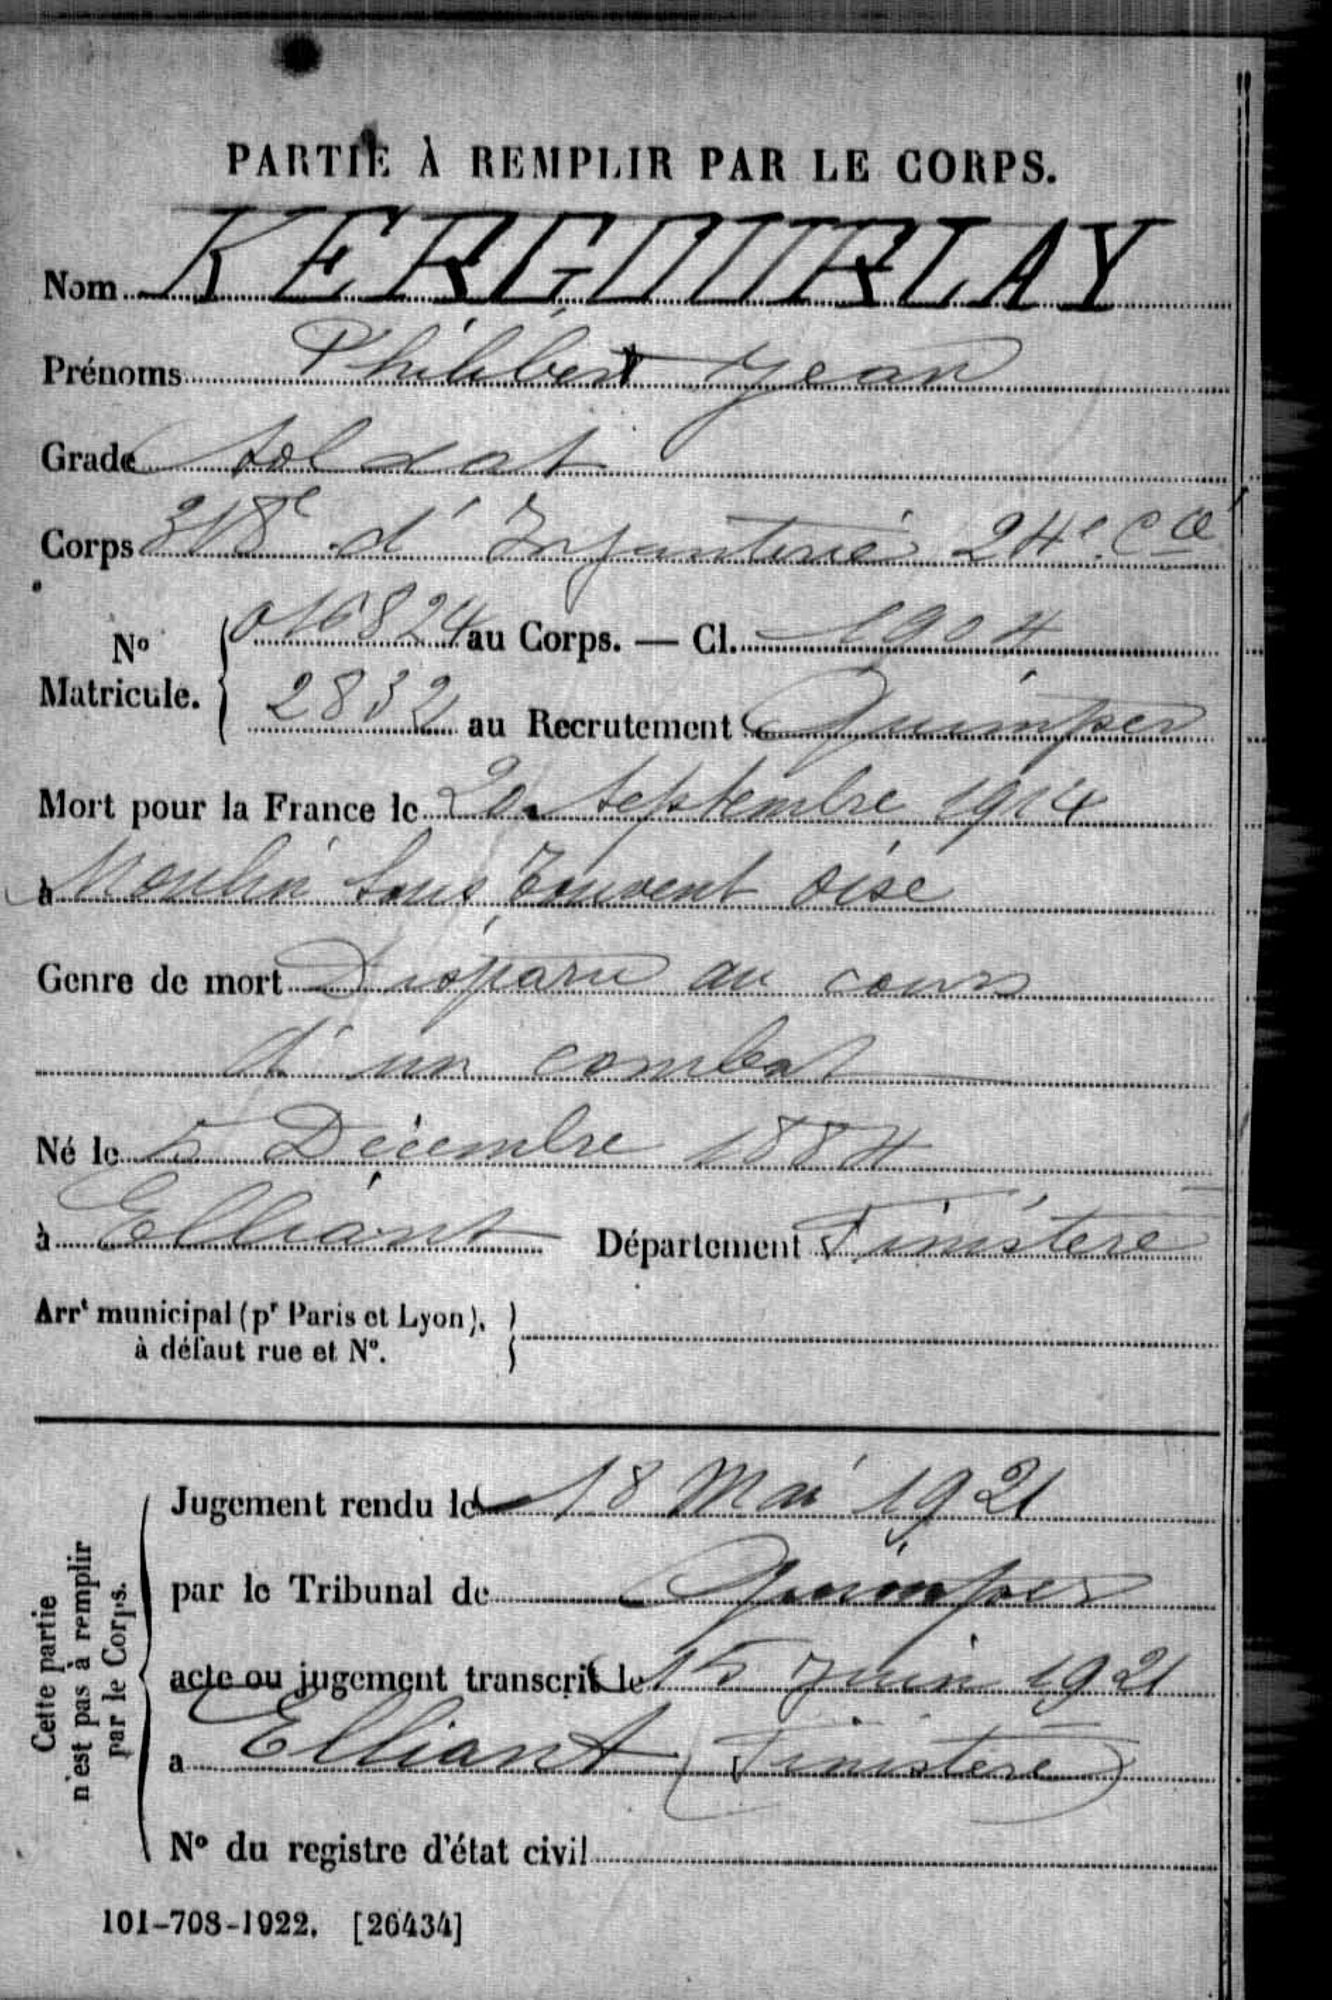 PARTIE À REMPLIR PAR LE CORPS.
Nom KERGOURLAY
Prénoms Philibert Jean
Grade Soldat
Corps 318e d'Infanterie 24e Cie
No Matricule. 016824 au Corps. — Cl. 1904
2832 au Recrutement Quimper
Mort pour la France le 20 Septembre 1914
à Moulin sous Touvent Oise
Genre de mort Disparu au cours
d'un combat
Né le 5 Décembre 1884
à Elliant Département Finistère
Arrt municipal (pr Paris et Lyon),
à défaut rue et No.
Cette partie
n'est pas à remplir
par le Corps.
Jugement rendu le 18 Mai 1921
par le Tribunal de Quimper
acte ou jugement transcrit le 15 Juin 1921
a Elliant (Finistère)
No du registre d'état civil
101-708-1922. [26434]